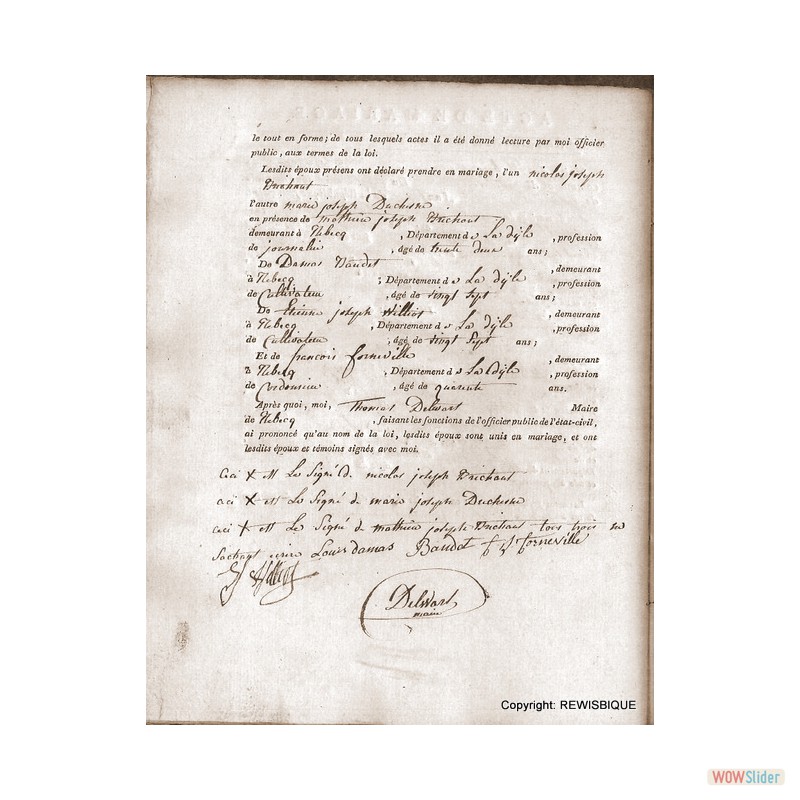 le tout en forme; de tous lesquels actes il a été donné lecture par moi officier
public, aux termes de la loi.
Lesdits époux présens ont déclaré prendre en mariage, l'un nicolas joseph
Brichaut
l'autre marie joseph Duchesne
en présence de mathieu joseph Brichaut
demeurant à Rebecq , Département de La dijle , profession
de journalié , âgé de trente deux ans;
De Damas Baudet , demeurant
à Rebecq ; Département de La dijle , profession
de Cultivateur , âgé de vingt Sept ans;
De Etienne joseph Williot , demeurant
à Rebecq , Département de La dijle , profession
de Cultivateur , âgé de vingt Sept ans;
Et de françois forneville , demeurant
à Rebecq , Département de La dijle , profession
de Cordonnier , âgé de quarente ans.
Après quoi, moi, Thomas Delwart Maire
de Rebecq , faisant les fonctions de l'officier public de l'état-civil,
ai prononcé qu'au nom de la loi, lesdits époux sont unis en mariage, et ont
lesdits époux et témoins signés avec moi.
Ceci X est Le Signé de nicolas joseph Brichaut
ceci X est Le Signé de marie joseph Duchesne
ceci X est Le Signé de mathieu joseph Brichaut tous trois ne
Sachant ecrire Louis damas Baudet f J forneville
Delwart
maire
Copyright: REWISBIQUE
WOWSlider